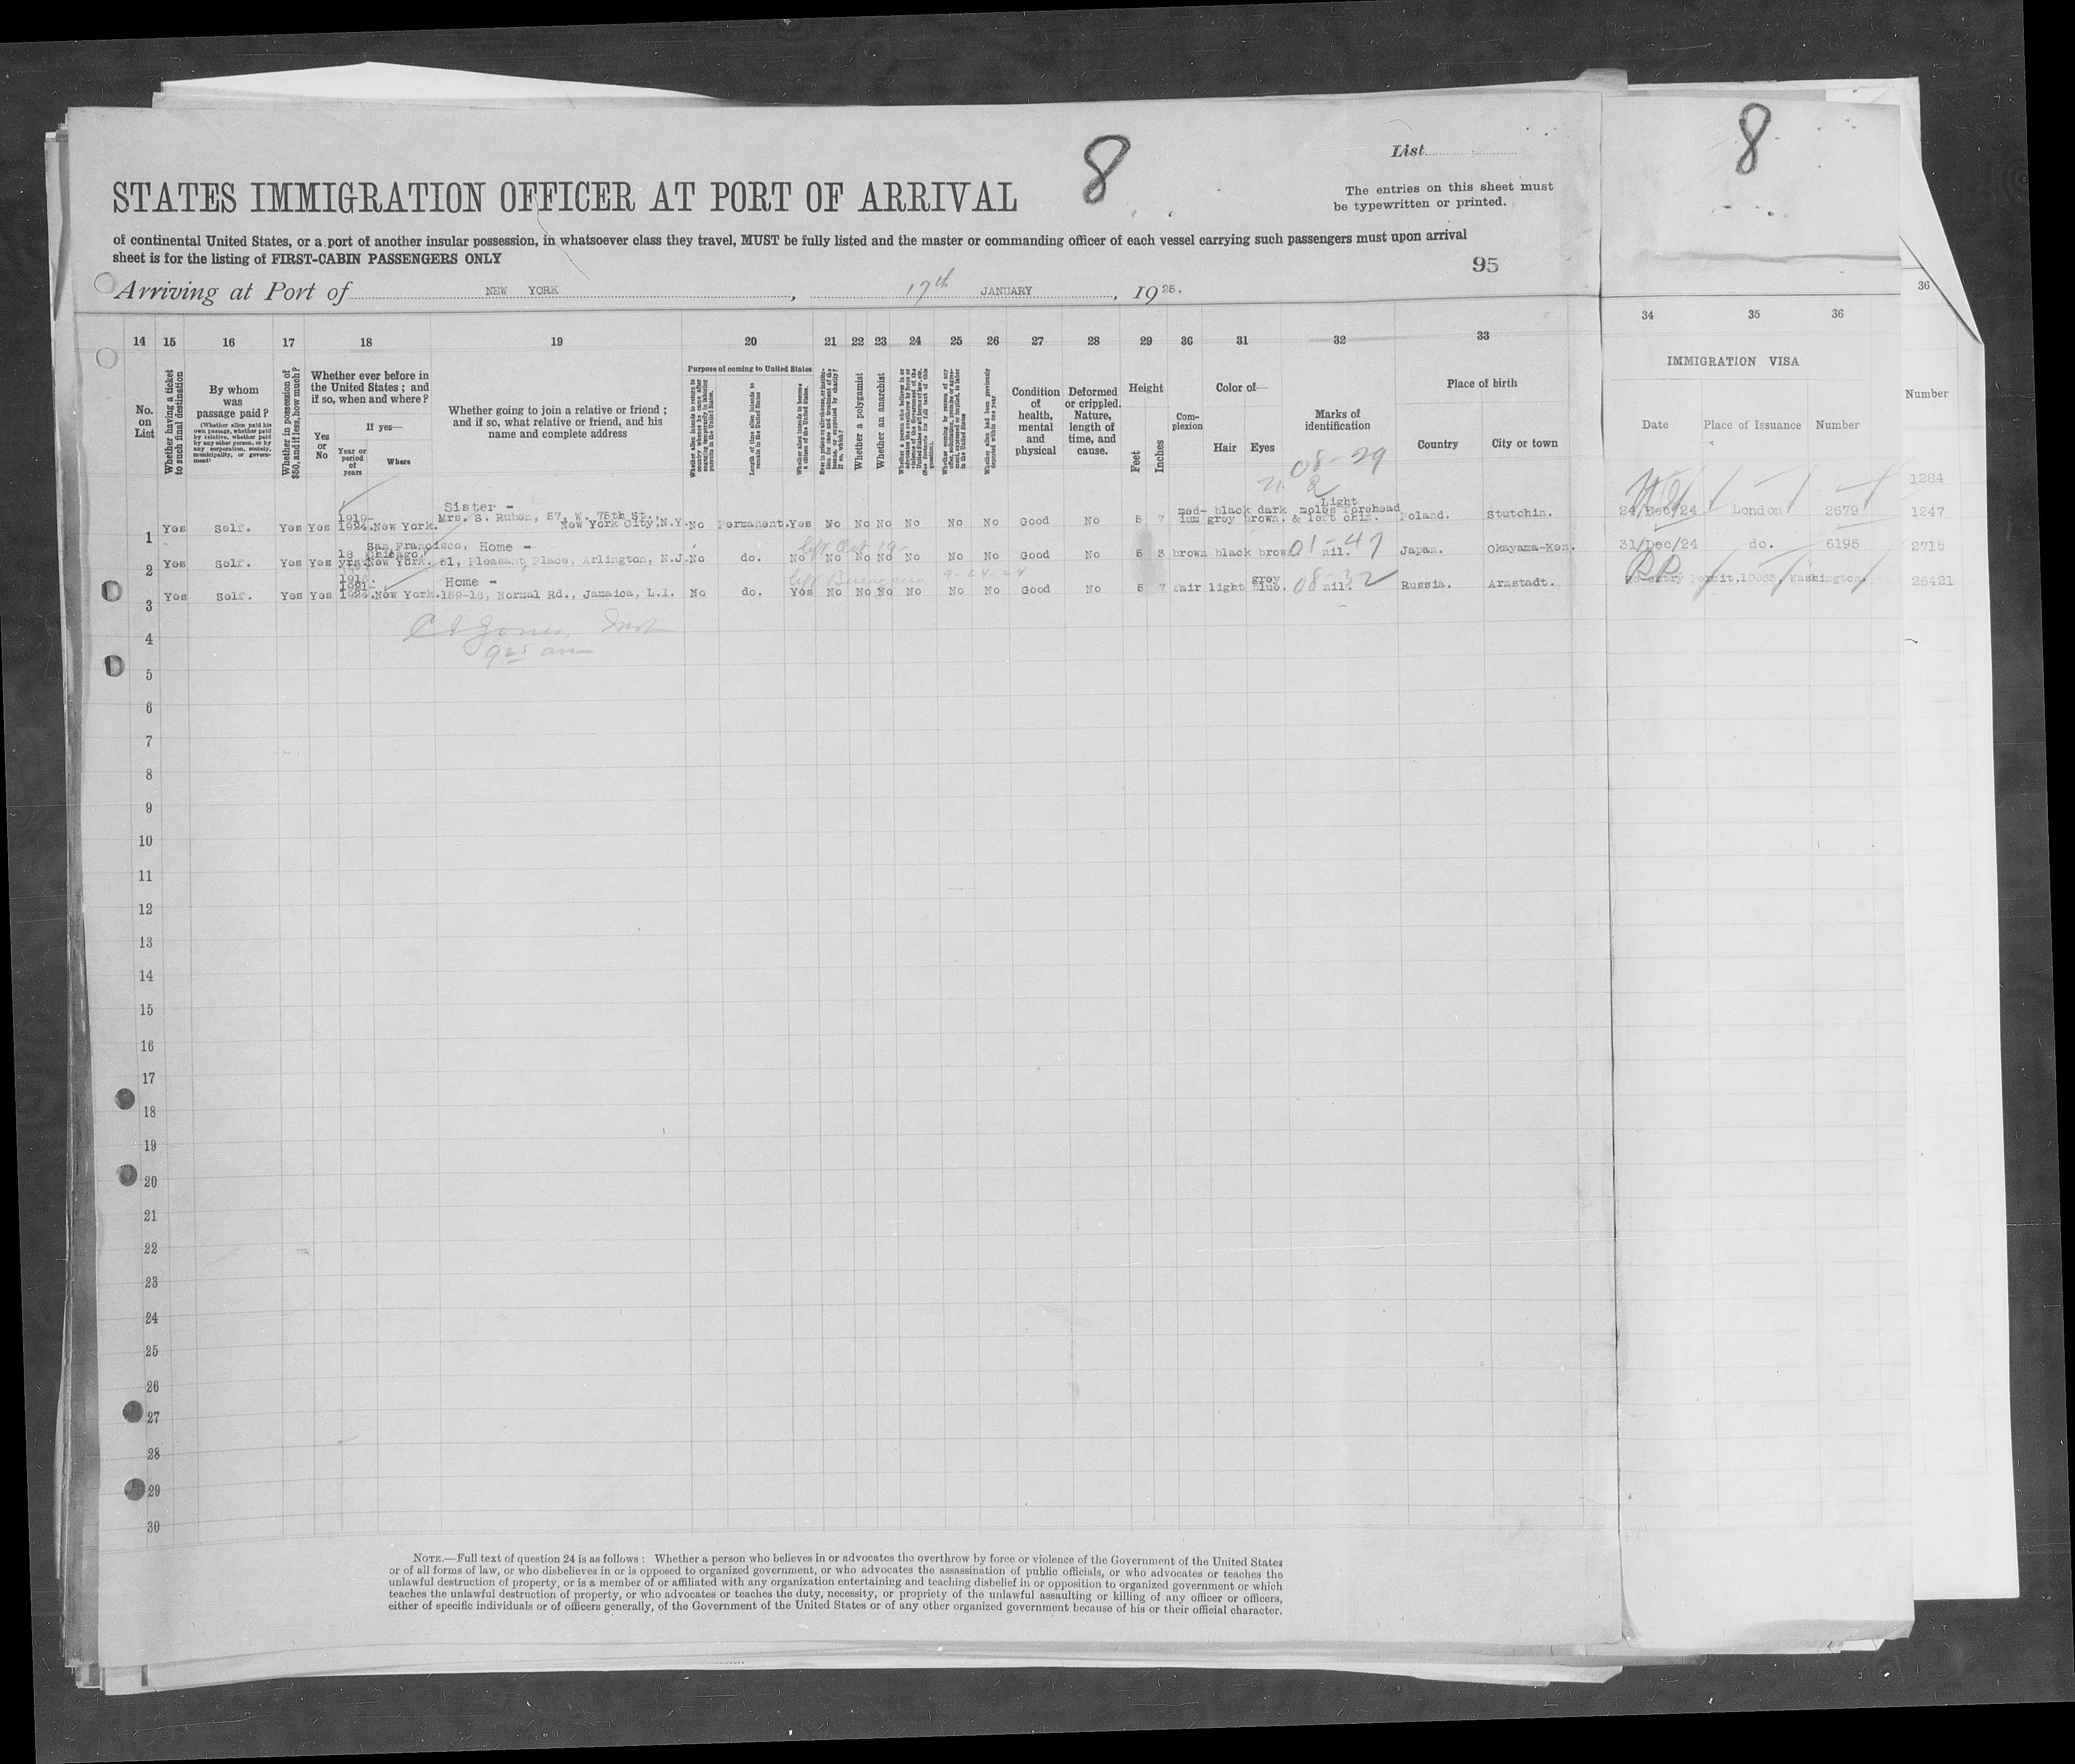 8
8
List
STATES IMMIGRATION OFFICER AT PORT OF ARRIVAL
The entries on this sheet must
be typewritten or printed.
of continental United States, or a port of another insular possession, in whatsoever class they travel, MUST be fully listed and the master or commanding officer of each vessel carrying such passengers must upon arrival
sheet is for the listing of FIRST-CABIN PASSENGERS ONLY
95
Arriving at Port of NEW YORK, 17th JANUARY, 1925.
36
14 15 16 17 18 19 20 21 22 23 24 25 26 27 28 29 30 31 32 33 34 35 36
IMMIGRATION VISA
No. on List
Whether having a ticket to such final destination
By whom was passage paid?
(Whether alien paid his own passage, whether paid by relative, whether paid by any other person, or by any corporation, society, municipality, or government)
Whether in possession of $50, and if less, how much?
Whether ever before in the United States; and if so, when and where?
Yes or No
If yes—
Year or period of years
Where
Whether going to join a relative or friend; and if so, what relative or friend, and his name and complete address
Purpose of coming to United States
Length of time alien intends to remain in the United States
Whether alien intends to become a citizen of the United States.
Whether a polygamist
Whether an anarchist
Whether alien had been previously deported within one year
Condition of health, mental and physical
Deformed or crippled. Nature, length of time, and cause.
Height
Feet
Inches
Complexion
Color of—
Hair
Eyes
Marks of identification
Place of birth
Country
City or town
Date
Place of Issuance
Number
Number
08-29
1284
1 Yes Self. Yes Yes 1919-1924. New York. Sister - Mrs. S. Ruben, 57, W. 75th St., New York City, N.Y. No Permanent. Yes No No No No No No Good No 5 7 medium black grey dark brown. Light moles forehead & left chin. Poland. Stutchin. 24/Dec/24 London 2679 1247
left Oct 19-
2 Yes Self. Yes Yes 18 yrs. San Francisco, Chicago, New York. Home - 61, Pleasant Place, Arlington, N.J. No do. No No No No No No No Good No 5 3 brown black brown 01-47 nil. Japan. Okayama-Ken. 31/Dec/24 do. 6195 2715
left 9-24-24
3 Yes Self. Yes Yes 1921-1924. New York. Home - 159-18, Normal Rd., Jamaica, L.I. No do. Yes No No No No No No Good No 5 7 fair light grey blue. 08-32 nil. Russia. Arnstadt. Re-entry Permit, Washington. 26421
4
925 am
5
6
7
8
9
10
11
12
13
14
15
16
17
18
19
20
21
22
23
24
25
26
27
28
29
30
NOTE.—Full text of question 24 is as follows: Whether a person who believes in or advocates the overthrow by force or violence of the Government of the United States
or of all forms of law, or who disbelieves in or is opposed to organized government, or who advocates the assassination of public officials, or who advocates or teaches the
unlawful destruction of property, or is a member of or affiliated with any organization entertaining and teaching disbelief in or opposition to organized government or which
teaches the unlawful destruction of property, or who advocates or teaches the duty, necessity, or propriety of the unlawful assaulting or killing of any officer or officers,
either of specific individuals or of officers generally, of the Government of the United States or of any other organized government because of his or their official character.